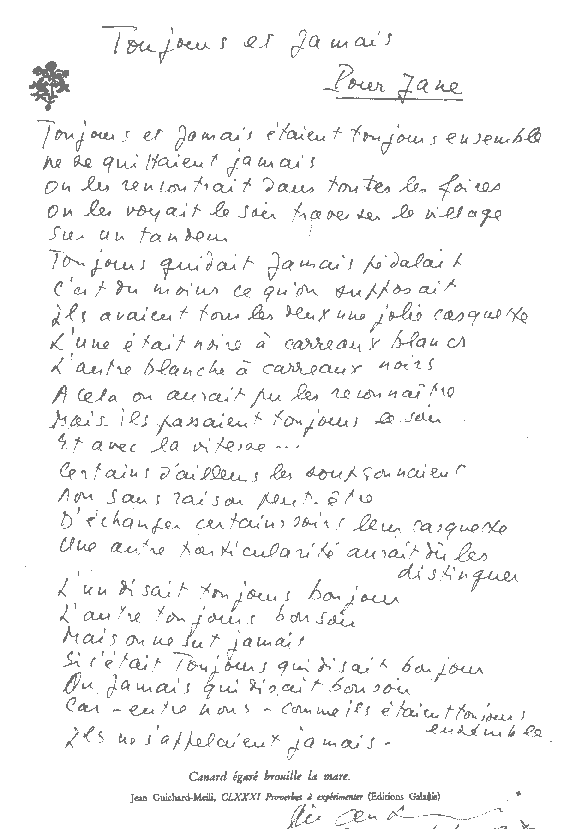 Toujours et Jamais
Pour Jane
Toujours et Jamais étaient toujours ensemble
ne se quittaient jamais
On les rencontrait dans toutes les foires
On les voyait le soir traverser le village
Sur un tandem
Toujours guidait Jamais pédalait
C'est du moins ce qu'on supposait
Ils avaient tous les deux une jolie casquette
L'une était noire à carreaux blancs
L'autre blanche à carreaux noirs
A cela on aurait pu les reconnaître
Mais ils passaient toujours le soir
Et avec la vitesse...
Certains d'ailleurs les soupçonnaient
Non sans raison peut-être
D'échanger certains soirs leur casquette
Une autre particularité aurait dû les
distinguer
L'un disait toujours bonjour
L'autre toujours bonsoir
Mais on ne sut jamais
Si c'était Toujours qui disait bonjour
Ou Jamais qui disait bonsoir
Car - entre nous - comme ils étaient toujours
ensemble
Ils ne s'appelaient jamais.
Canard égaré brouille la mare.
Jean Guichard-Meili, CLXXXI Proverbes à expérimenter (Editions Galadis)